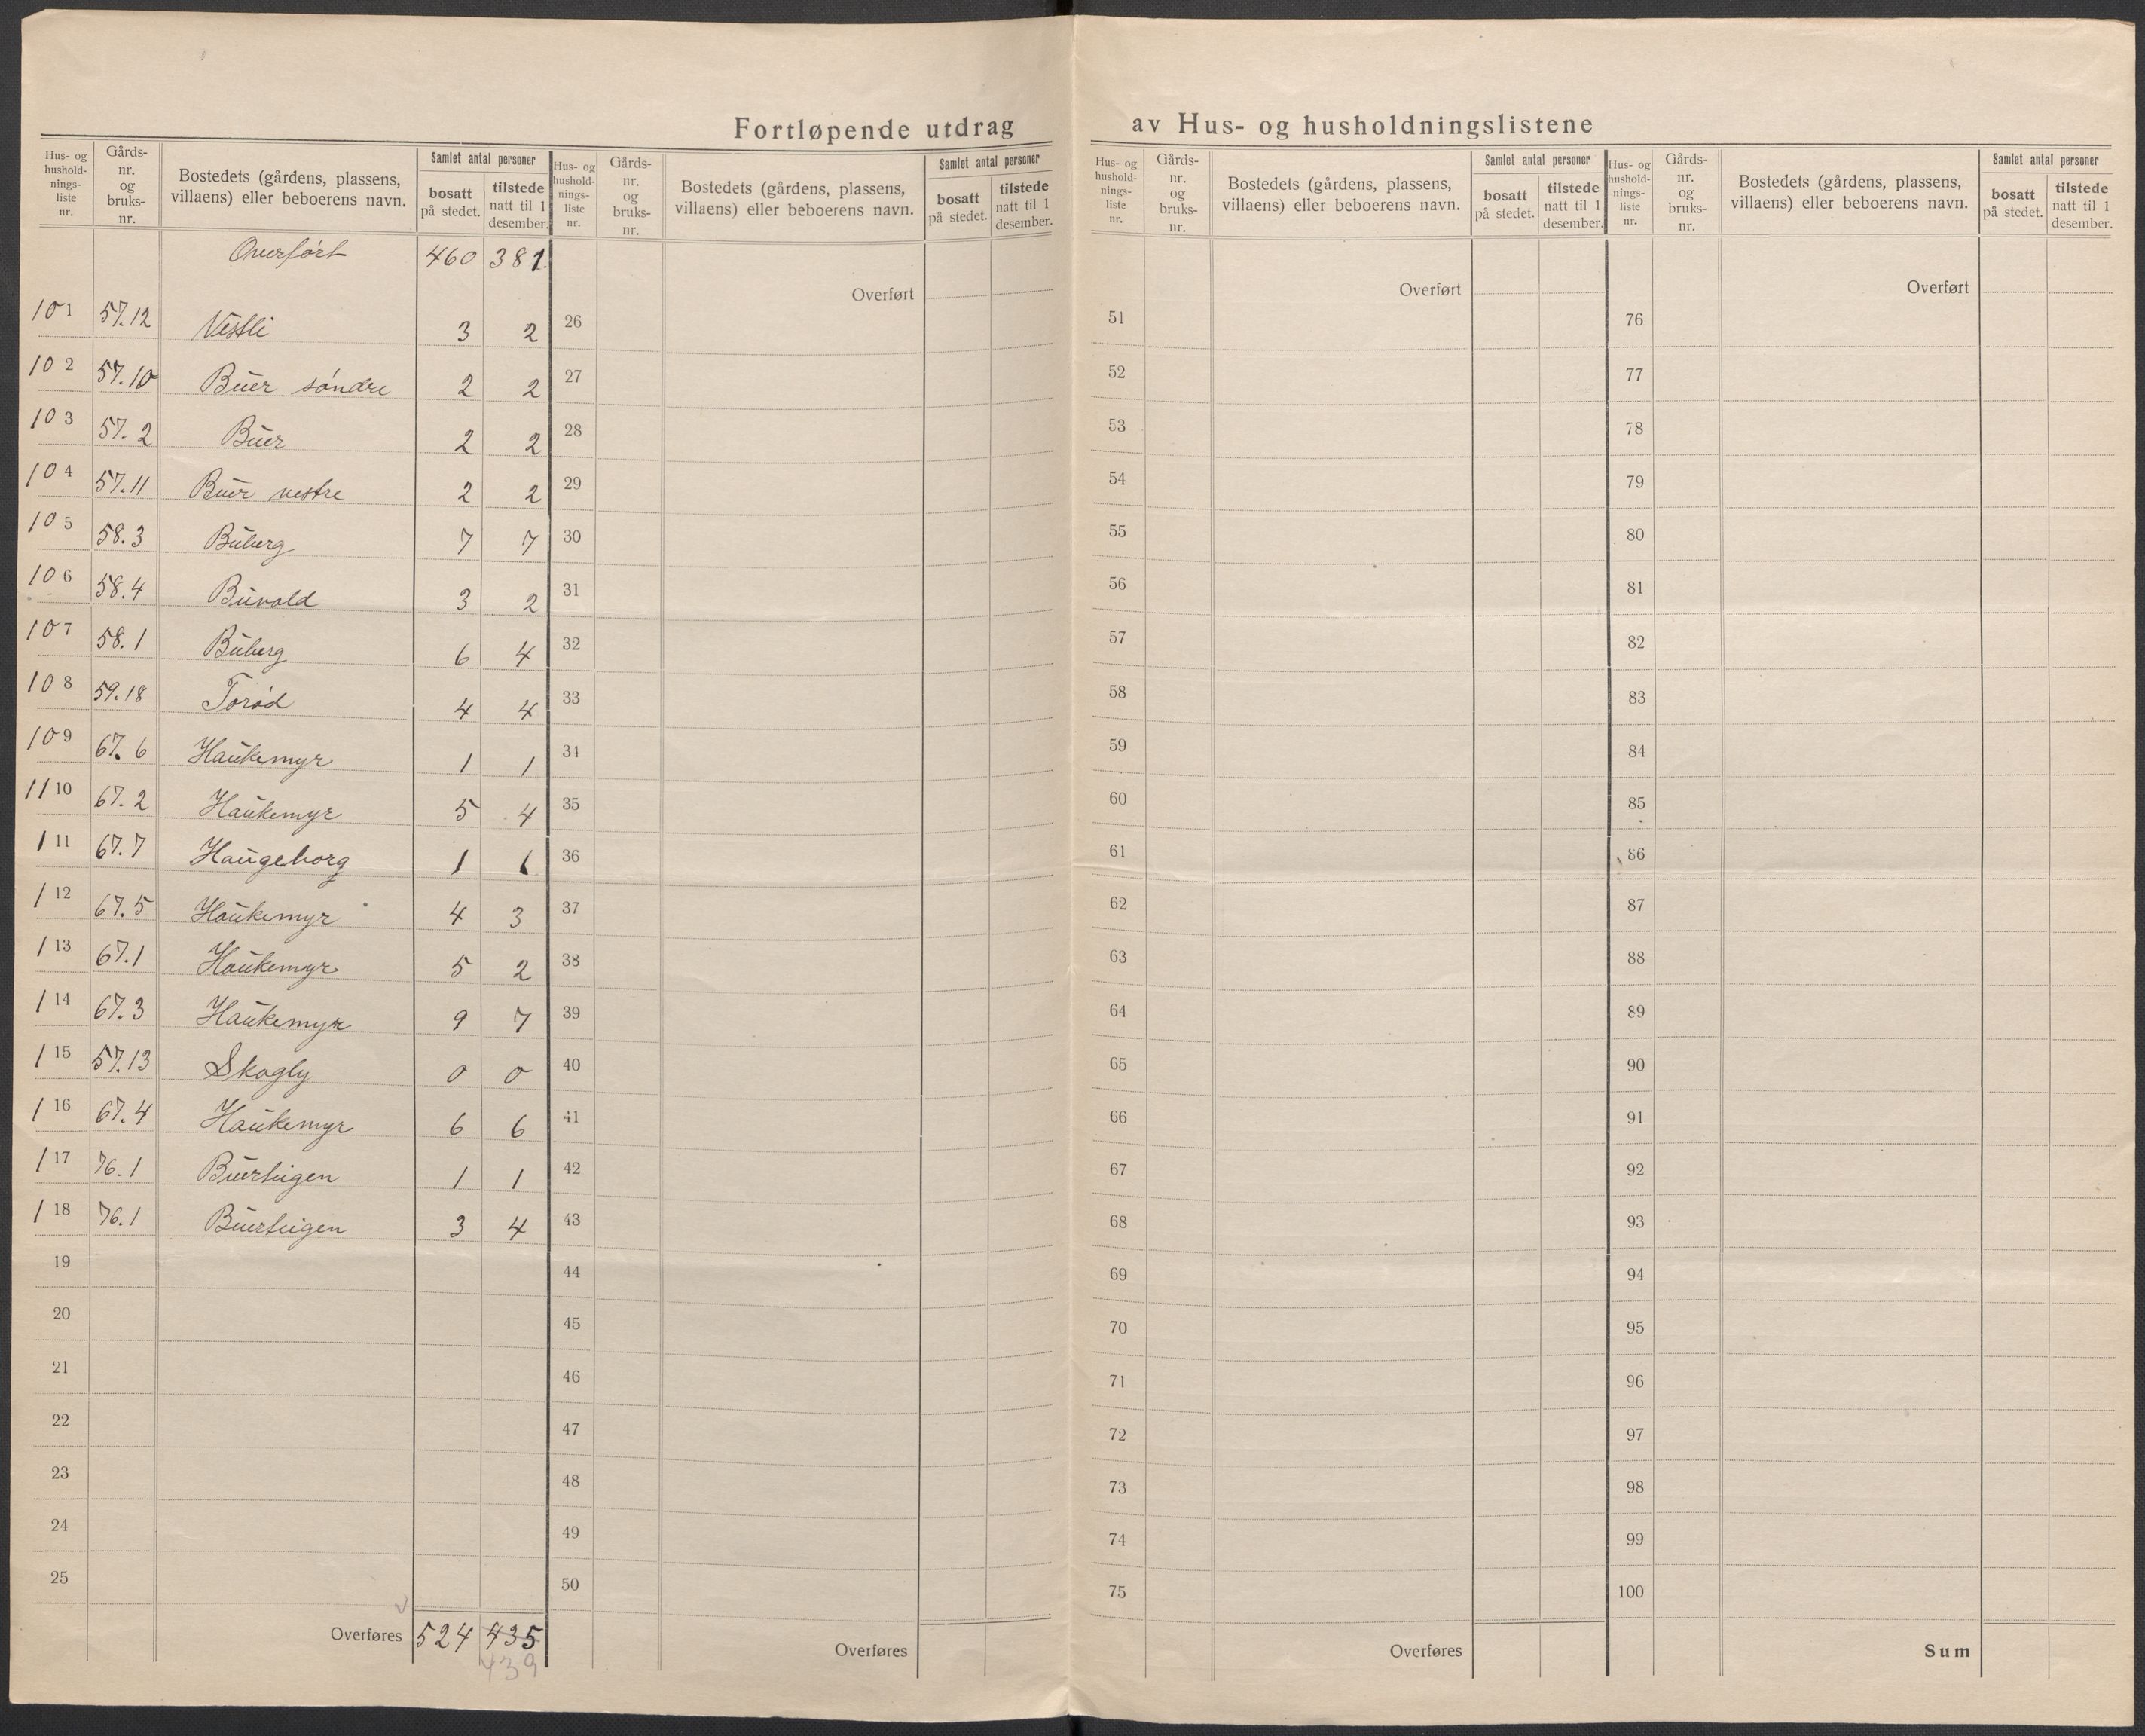 Fortløpende utdrag av Hus- og husholdningslistene
Hus- og hushold-nings-liste nr. | Gårds-nr. og bruks-nr. | Bostedets (gårdens, plassens, villaens) eller beboerens navn. | Samlet antal personer | bosatt på stedet. | tilstede natt til 1 desember.
Overført 460 381
101 57.12 Vestli 3 2
102 57.10 Buer söndre 2 2
103 57.2 Buer 2 2
104 57.11 Buer vestre 2 2
105 58.3 Buberg 7 7
106 58.4 Buvold 3 2
107 58.1 Buberg 6 4
108 59.18 Toród 4 4
109 67.6 Haukemyr 1 1
1110 67.2 Haukemyr 5 4
111 67.7 Haugeborg 1 1
112 67.5 Haukemyr 4 3
113 67.1 Haukemyr 5 2
114 67.3 Haukemyr 9 7
115 57.13 Skogly 0 0
116 67.4 Haukemyr 6 6
117 76.1 Buerteigen 1 1
118 76.1 Buerteigen 3 4
19
20
21
22
23
24
25
Overføres 524 435
439
Hus- og hushold-nings-liste nr. | Gårds-nr. og bruks-nr. | Bostedets (gårdens, plassens, villaens) eller beboerens navn. | Samlet antal personer | bosatt på stedet. | tilstede natt til 1 desember.
Overført
26
27
28
29
30
31
32
33
34
35
36
37
38
39
40
41
42
43
44
45
46
47
48
49
50
Overføres
Hus- og hushold-nings-liste nr. | Gårds-nr. og bruks-nr. | Bostedets (gårdens, plassens, villaens) eller beboerens navn. | Samlet antal personer | bosatt på stedet. | tilstede natt til 1 desember.
Overført
51
52
53
54
55
56
57
58
59
60
61
62
63
64
65
66
67
68
69
70
71
72
73
74
75
Overføres
Hus- og hushold-nings-liste nr. | Gårds-nr. og bruks-nr. | Bostedets (gårdens, plassens, villaens) eller beboerens navn. | Samlet antal personer | bosatt på stedet. | tilstede natt til 1 desember.
Overført
76
77
78
79
80
81
82
83
84
85
86
87
88
89
90
91
92
93
94
95
96
97
98
99
100
Sum